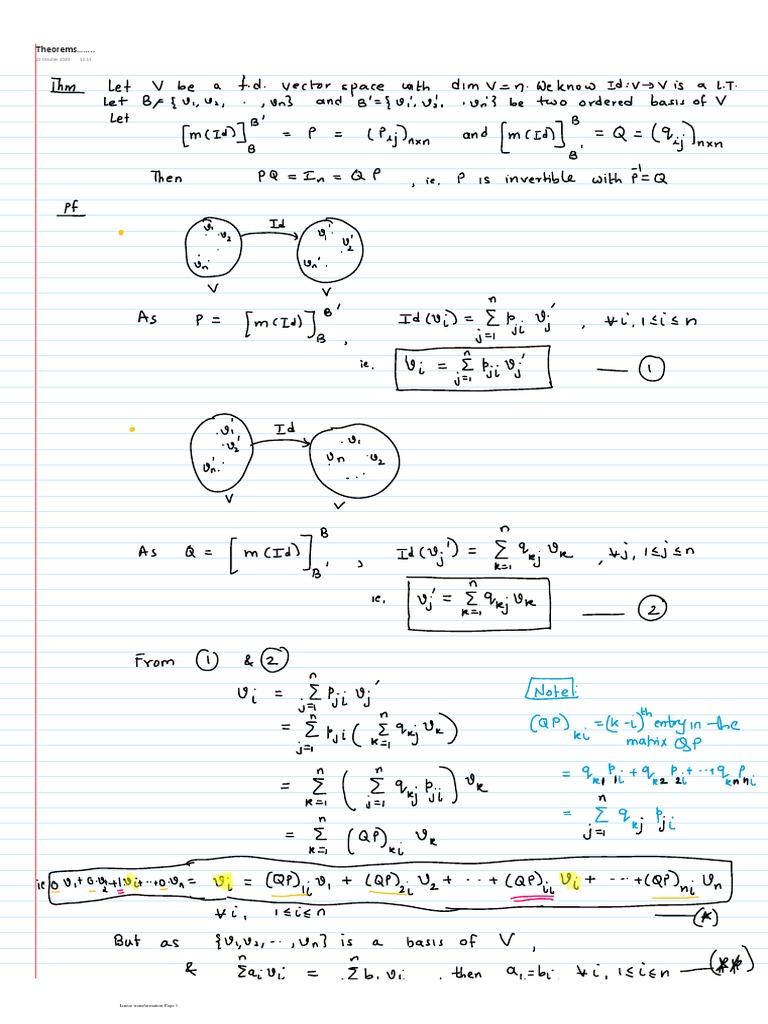 Theorems.......
22 October 2020 12:13
Thm Let V be a f.d. vector space with dim V=n. We know Id: V→V is a L.T.
Let B={v₁, v₂, ..., vn} and B'={v₁', v₂', ..., vn'} be two ordered basis of V
Let
[m(Id)]_B^B' = P = (P_ij)_n×n and [m(Id)]_B'^B = Q = (q_ij)_n×n
Then PQ = I_n = QP , ie. P is invertible with P⁻¹=Q
Pf
Id
v₁ v₂ vn v₁' v₂' vn'
V V
As P = [m(Id)]_B^B' , Id(v_i) = Σ_{j=1}^n p_ji v_j' , ∀i, 1≤i≤n
ie. v_i = Σ_{j=1}^n p_ji v_j' — ①
Id
v₁' v₂' vn' v₁ v₂ vn ...
V V
As Q = [m(Id)]_B'^B , Id(v_j') = Σ_{k=1}^n q_kj v_k , ∀j, 1≤j≤n
ie. v_j' = Σ_{k=1}^n q_kj v_k — ②
From ① & ②
v_i = Σ_{j=1}^n p_ji v_j'
= Σ_{j=1}^n p_ji ( Σ_{k=1}^n q_kj v_k )
= Σ_{k=1}^n ( Σ_{j=1}^n q_kj p_ji ) v_k
= Σ_{k=1}^n (QP)_ki v_k
Note:
(QP)_ki = (k-i)th entry in the
matrix QP
= q_k1 p_1i + q_k2 p_2i + ... + q_kn p_ni
= Σ_{j=1}^n q_kj p_ji
ie 0 v₁ + 0.v₂ + 1v_i + ... + 0.vn = v_i = (QP)_1i v₁ + (QP)_2i v₂ + ... + (QP)_ii v_i + ... + (QP)_ni vn
∀i, 1≤i≤n — (*)
But as {v₁, v₂, .., vn} is a basis of V ,
& Σ^n a_i v_i = Σ^n b_i v_i , then a_i = b_i ∀i, 1≤i≤n — (**)
Linear transformation Page 1